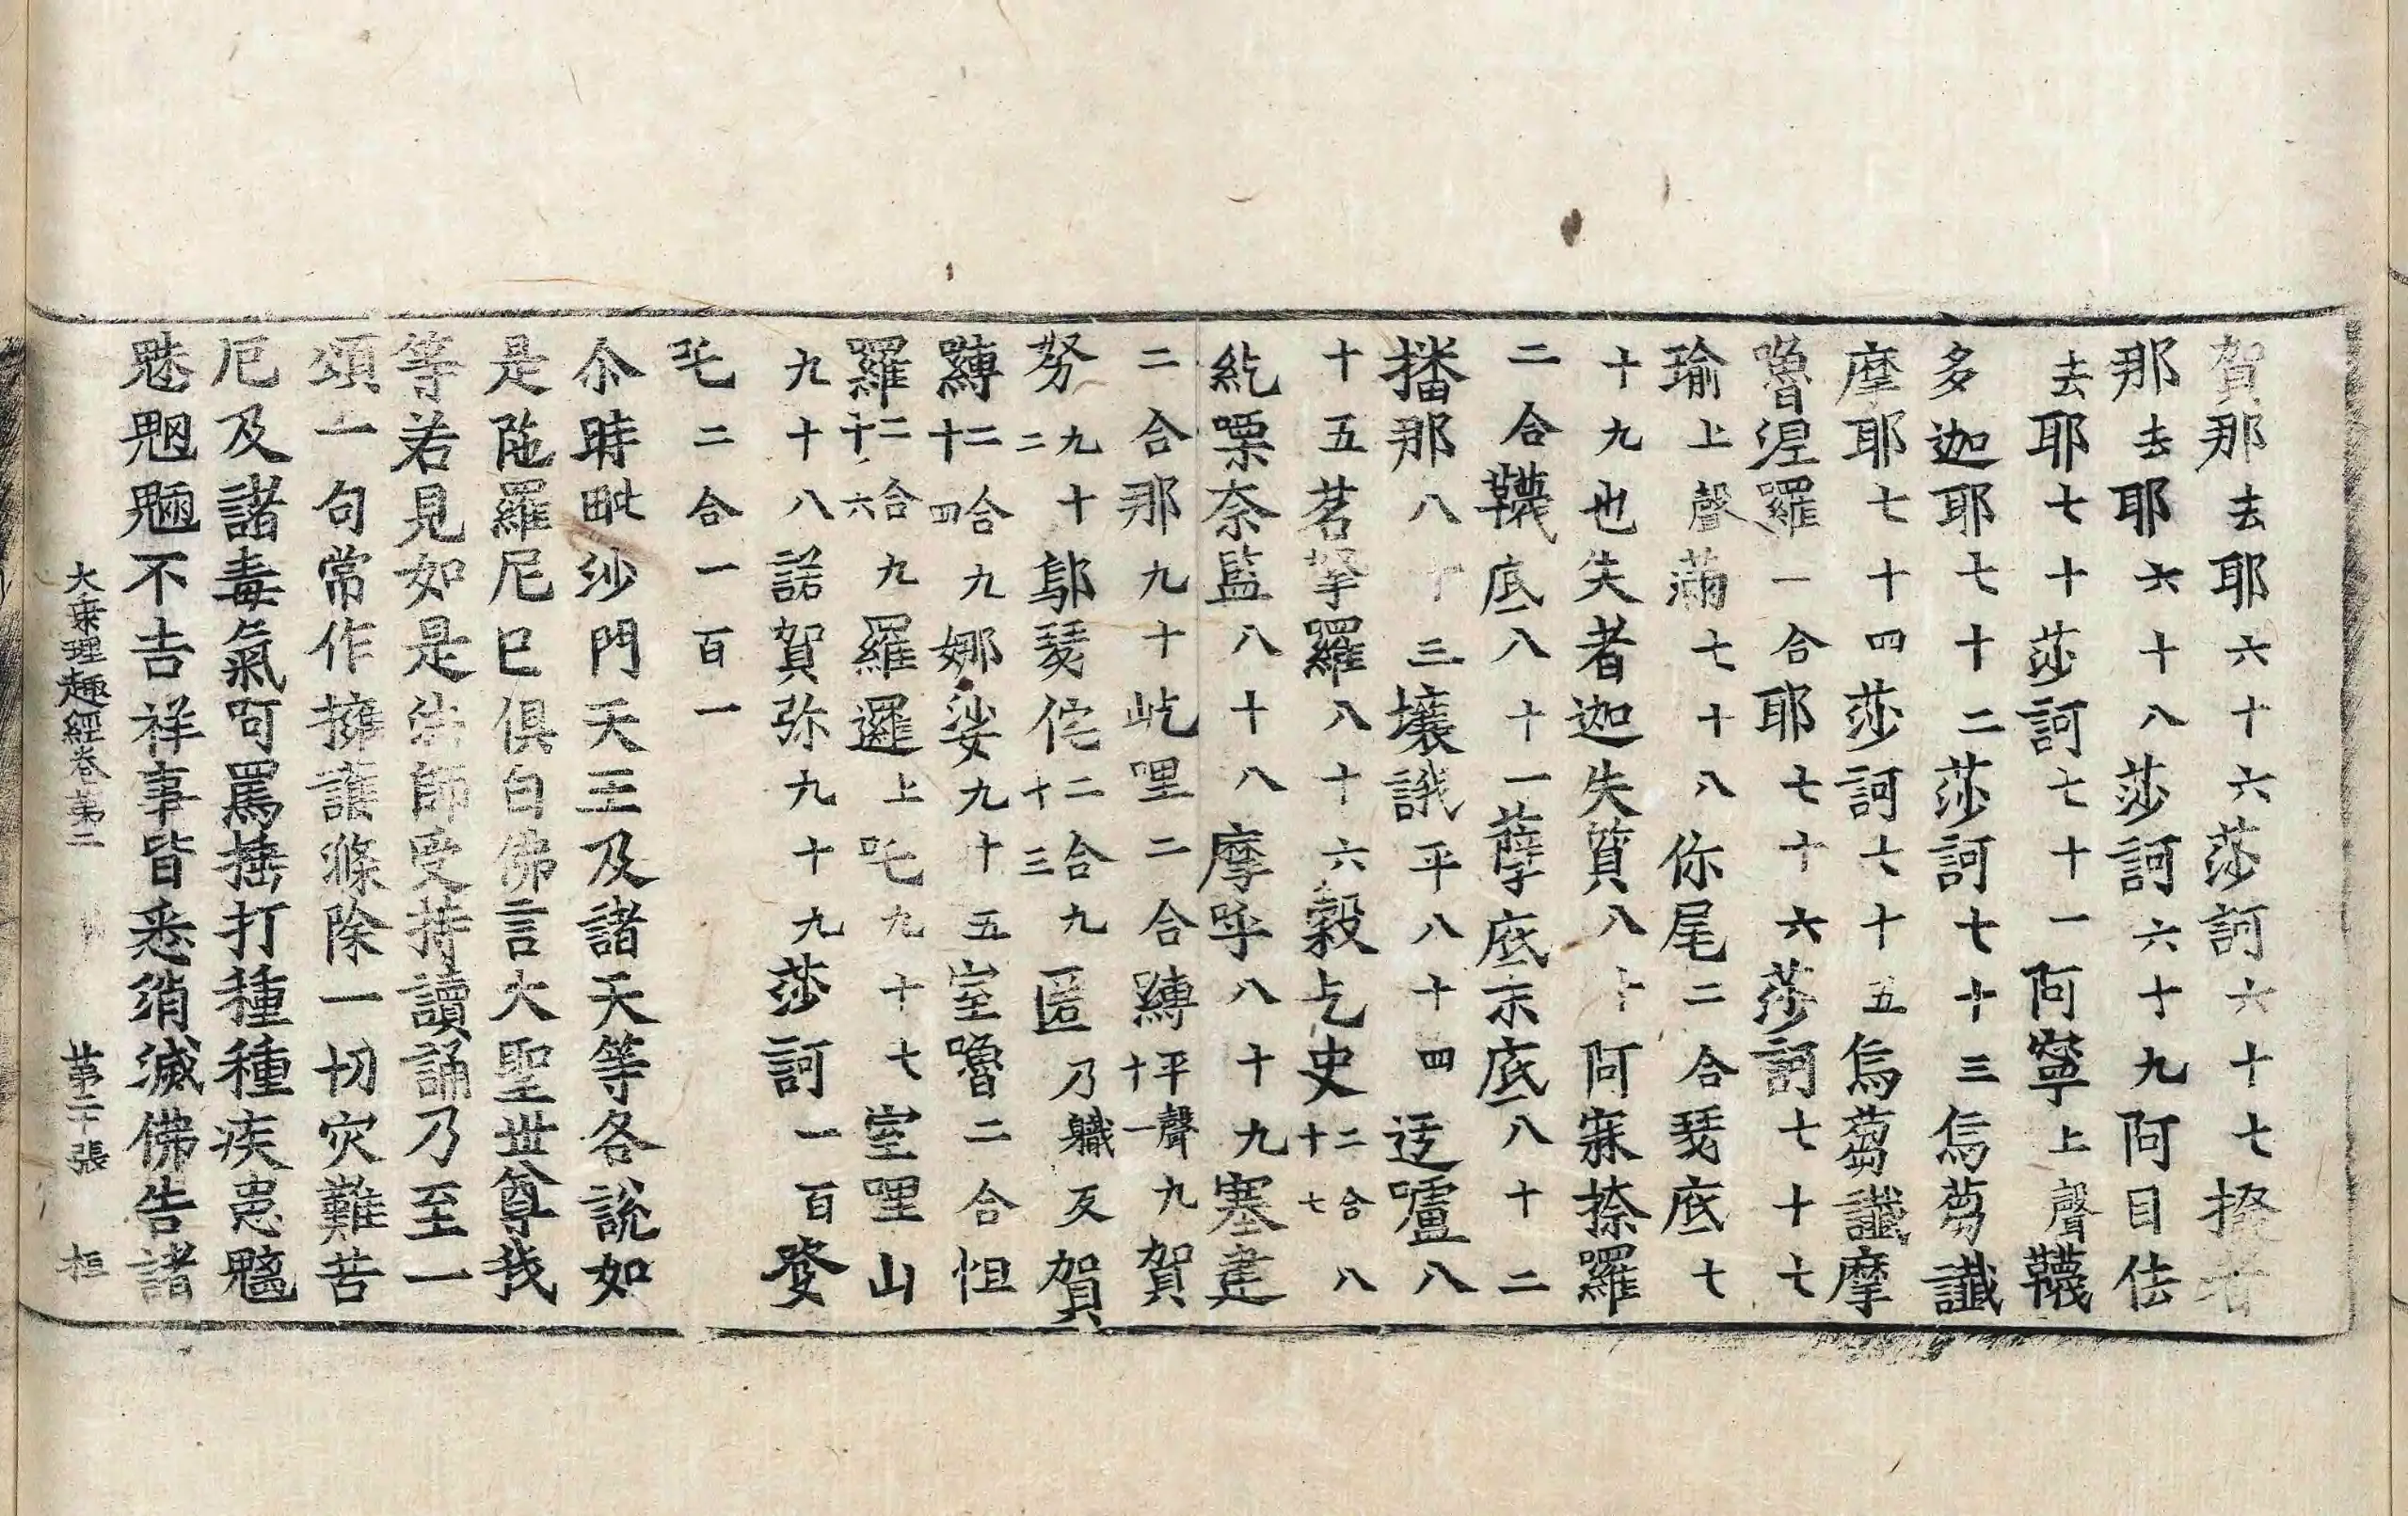 賀那去耶六十六莎訶六十七撥者
那去耶六十八莎訶六十九阿目佉
去耶七十莎訶七十一阿寧上聲韈
多迦耶七十二莎訶七十三烏蒭讖
摩耶七十四莎訶七十五烏蒭讖摩
嚕涅羅一合耶七十六莎訶七十七
瑜上聲蒲七十八你尾二合瑟底七
十九也失者迦失質八十阿寐捺羅
二合韈底八十一薜底末底八十二
播那八十三壤誐平八十四迻嚧八
十五茗拏羅八十六穀乞史二合八十七
紇栗奈監八十八摩呼八十九塞建
二合那九十屹哩二合縛平聲九十一賀
努九十二鄔瑟佗二合九十三匿乃軄反賀
縛二合九十四娜娑九十五室嚕二合怛
羅二合九十六羅邏上吒九十七室哩山
九十八諾賀弥九十九莎訶一百癹
吒二合一百一
尒時毗沙門天王及諸天等各說如
是陁羅尼已俱白佛言大聖世尊我
等若見如是法師受持讀誦乃至一
頌一句常作擁護滌除一切灾難苦
厄及諸毒氣呵罵捶打種種疾患魑
魅魍魎不吉祥事皆悉消滅佛告諸
大乘理趣經卷第二 第二十張 桓